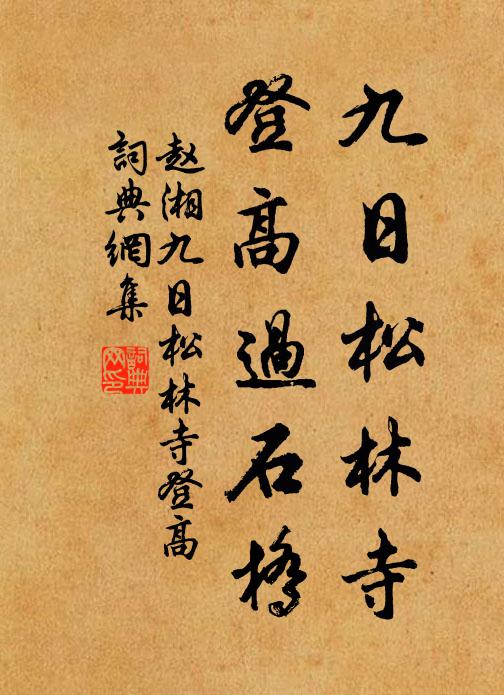 九日松林寺
登高過石橋
赵湘九日松林寺登高
詞典網集
詞典
网印